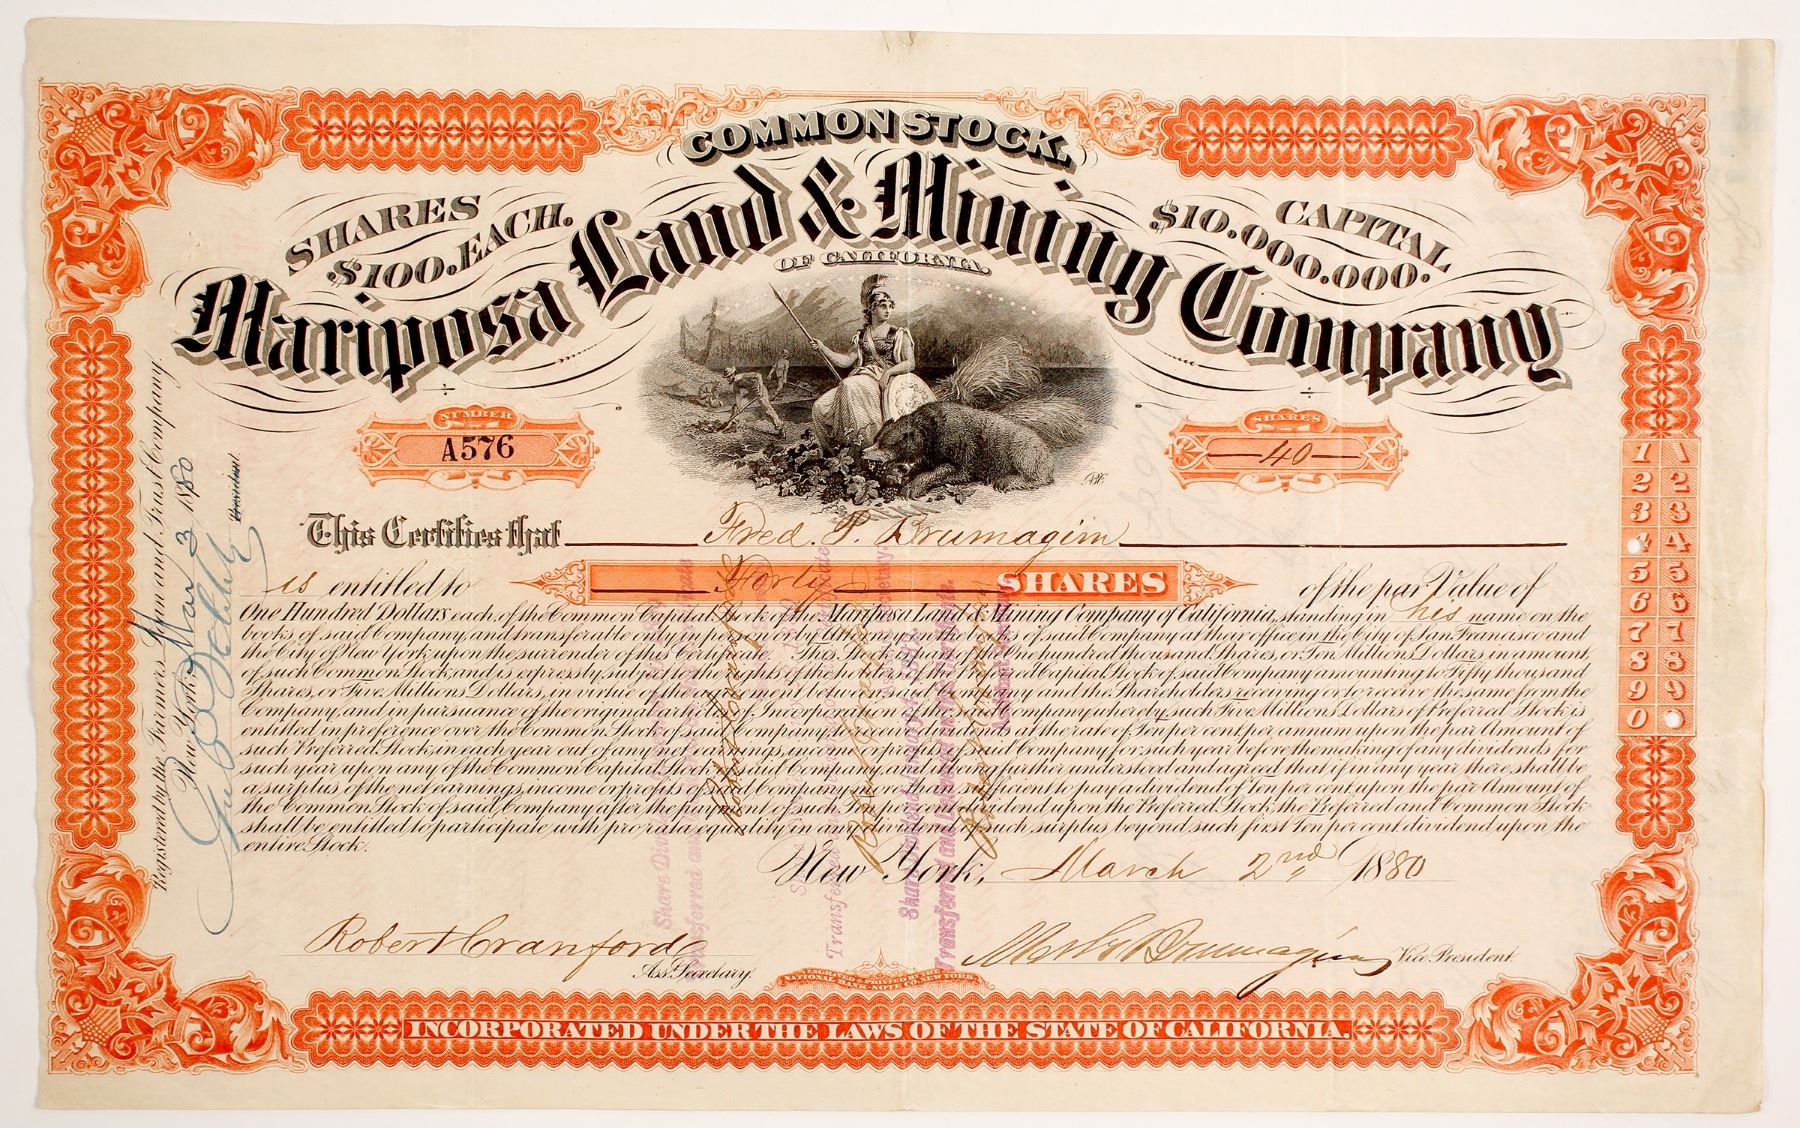 COMMON STOCK.
SHARES
$100. EACH.
CAPITAL
$10.000.000.
Mariposa Land & Mining Company
OF CALIFORNIA.
NUMBER
A576
SHARES
40
This Certifies that Fred. P. Brumagim
is entitled to Forty SHARES of the par Value of
One Hundred Dollars each of the Common Capital Stock of the Mariposa Land & Mining Company of California, standing in his name on the
books of said Company, and transferable only in person or by Attorney on the books of said Company at their office in the City of San Francisco and
the City of New York upon the surrender of this Certificate. This Stock is part of the One hundred thousand Shares, or Ten Millions Dollars, in amount,
of such Common Stock and is expressly subject to the rights of the holders of the Preferred Capital Stock of said Company amounting to Fifty thousand
Shares, or Five Millions Dollars, in virtue of the agreement between said Company and the Shareholders receiving or to receive the same from the
Company, and in pursuance of the original articles of Incorporation of the said Company whereby such Five Millions Dollars of Preferred Stock is
entitled in preference over the Common Stock of said Company, to receive dividends at the rate of Ten per cent per annum upon the par Amount of
such Preferred Stock, in each year out of any net earnings, income or profits of said Company for such year before the making of any dividends for
such year upon any of the Common Capital Stock of said Company, and it being further understood and agreed that if in any year there shall be
a surplus of the net earnings, income or profits of said Company over the sum sufficient to pay a dividend of Ten per cent upon the par Amount of
the Common Stock of said Company after the payment of such Ten per cent dividend upon the Preferred Stock the Preferred and Common Stock
shall be entitled to participate with pro rata equality in any dividend of such surplus beyond such first Ten per cent dividend upon the
entire Stock.
New York, March 2nd 1880
Robert Cranford
Ass. Secretary.
Mark Brumagim Vice President
ENGRAVED & PRINTED BY THE
NATIONAL BANK-NOTE CO. NEW YORK.
INCORPORATED UNDER THE LAWS OF THE STATE OF CALIFORNIA.
Registered by the Farmers Loan and Trust Company.
New York, Mar 3 1880
President.
1 1
2 2
3 3
4 4
5 5
6 6
7 7
8 8
9 9
0 0